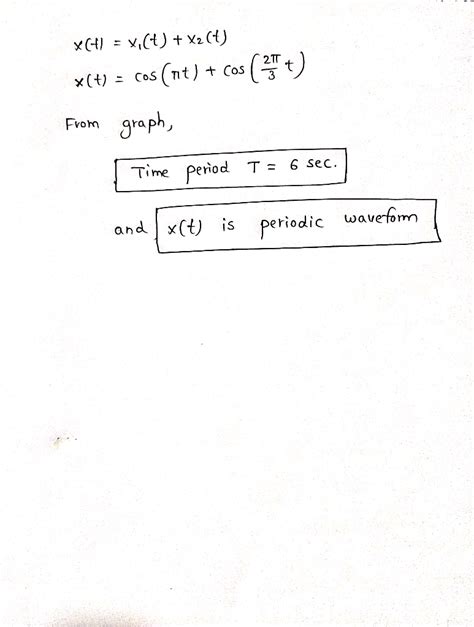 x(t) = x₁(t) + x₂(t)
x(t) = cos(πt) + cos(2π/3 t)
From graph,
Time period T = 6 sec.
and x(t) is periodic waveform